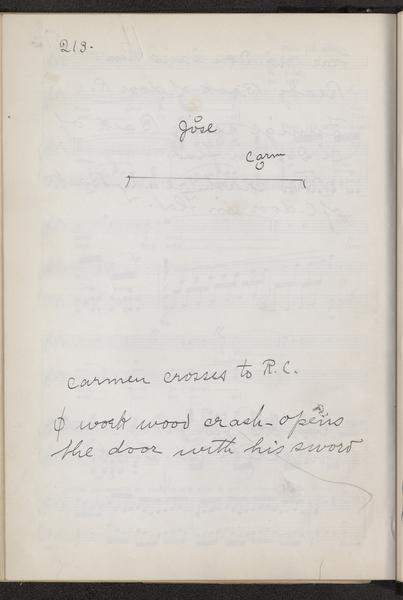 213.
José
Carm
Carmen crosses to R.C.
ϕ work wood crash - opens
the door with his sword